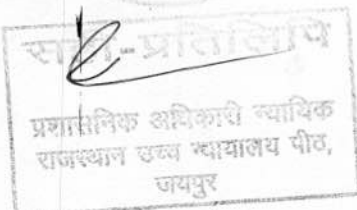 सत्य-प्रतिलिपि
प्रशासनिक अधिकारी न्यायिक
राजस्थान उच्च न्यायालय पीठ,
जयपुर